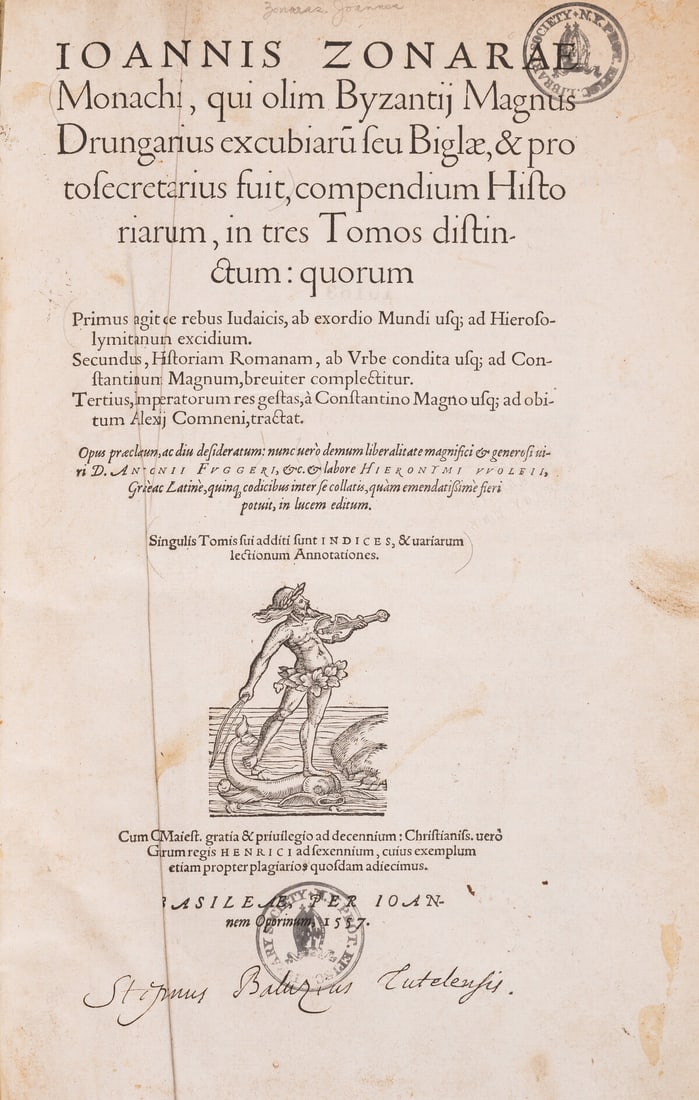 Zonaras, Joannes
IOANNIS ZONARAE
Monachi, qui olim Byzantij Magnus
Drungarius excubiarũ ſeu Biglæ, & pro
toſecretarius fuit, compendium Hiſto
riarum, in tres Tomos diſtin-
ctum: quorum
Primus agit de rebus Iudaicis, ab exordio Mundi uſq; ad Hieroſo-
lymitanum excidium.
Secundus, Hiſtoriam Romanam, ab Vrbe condita uſq; ad Con-
ſtantinum Magnum, breuiter complectitur.
Tertius, Imperatorum res geſtas, à Conſtantino Magno uſq; ad obi-
tum Alexij Comneni, tractat.
Opus præclarum, ac diu deſideratum: nunc uerò demum liberalitate magnifici & generoſi ui-
ri D. ANTONII FVGGERI, &c. & labore HIERONYMI VVOLFII,
Græcè ac Latinè, quinq; codicibus inter ſe collatis, quàm emendatißimè fieri
potuit, in lucem editum.
Singulis Tomis ſui additi ſunt INDICES, & uariarum
lectionum Annotationes.
Cum Maieſt. gratia & priuilegio ad decennium: Chriſtianiſſ. uerò
regis HENRICI ad ſexennium, cuius exemplum
etiam propter plagiarios quoſdam adiecimus.
BASILEAE, PER IOAN-
nem Oporinum, 1557.
Stephanus Baluzius Tutelensis.
SOCIETY N.Y. PROT. EPISC. LIBRARY
SOCIETY N.Y. PROT. EPISC. LIBRARY